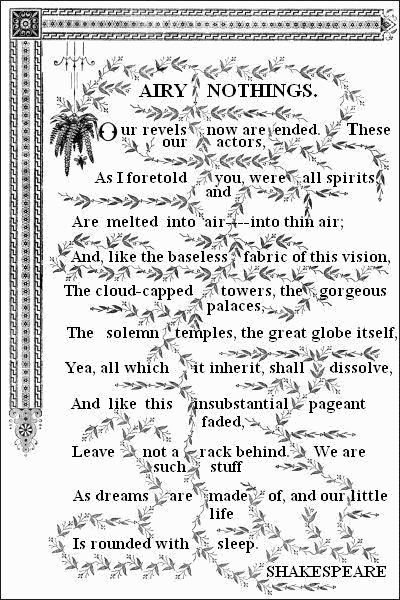 AIRY NOTHINGS.
Our revels now are ended. These
our actors,
As I foretold you, were all spirits,
and
Are melted into air----into thin air;
And, like the baseless fabric of this vision,
The cloud-capped towers, the gorgeous
palaces,
The solemn temples, the great globe itself,
Yea, all which it inherit, shall dissolve,
And like this insubstantial pageant
faded,
Leave not a rack behind. We are
such stuff
As dreams are made of, and our little
life
Is rounded with sleep.
SHAKESPEARE